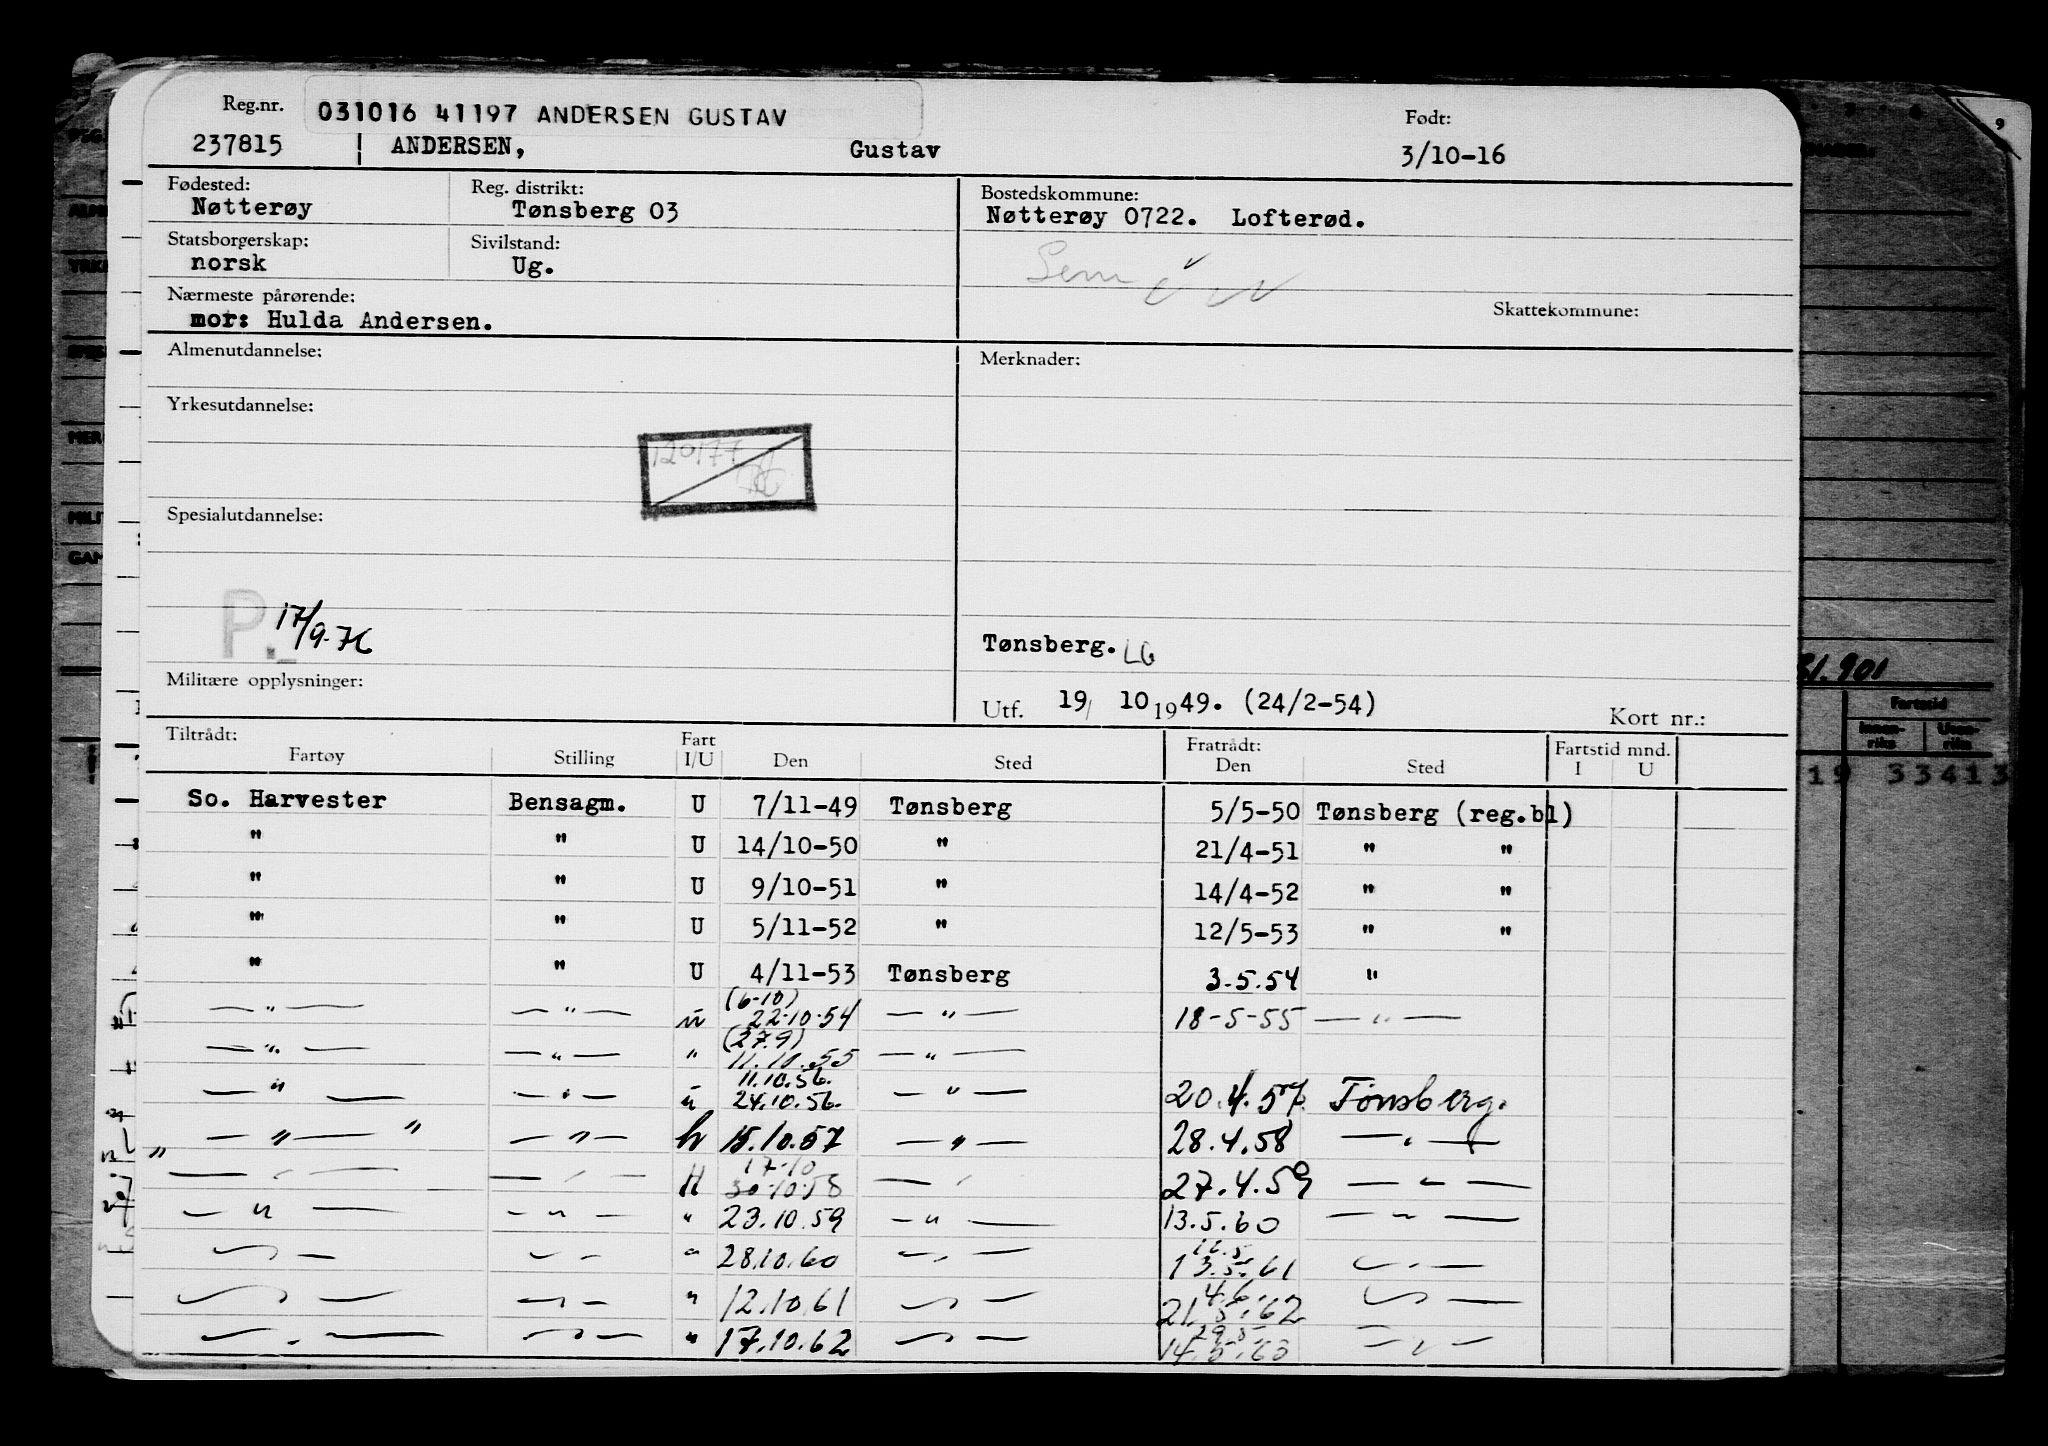 Reg.nr. 031016 41197 ANDERSEN GUSTAV Født:
237815 ANDERSEN, Gustav 3/10-16
Fødested: Reg. distrikt: Bostedskommune:
Nøtterøy Tønsberg 03 Nøtterøy 0722. Lofterød.
Statsborgerskap: Sivilstand:
norsk Ug. Sem
Nærmeste pårørende: Skattekommune:
mor: Hulda Andersen.
Almenutdannelse: Merknader:
Yrkesutdannelse:
120177
Spesialutdannelse:
P. 17/9-76
Tønsberg. LG
Militære opplysninger:
Utf. 19/ 10 1949. (24/2-54) Kort nr.:
Tiltrådt: Fart Fratrådt: Fartstid mnd.
Fartøy Stilling I/U Den Sted Den Sted I U
So. Harvester Bensagm. U 7/11-49 Tønsberg 5/5-50 Tønsberg (reg.bl)
" " U 14/10-50 " 21/4-51 " "
" " U 9/10-51 " 14/4-52 " "
" " U 5/11-52 " 12/5-53 " "
" " U 4/11-53 Tønsberg 3.5.54 "
(6-10)
— " — — " — u 22-10-54 — " — 18-5-55 — " —
(27.9)
— " — — " — " 11.10.55 — " —
11.10.56.
— " — — " — u 24.10.56. — " — 20.4.57. Tønsberg.
" — " — " — " — h 15.10.57 — " — 28.4.58 — " —
17-10
— " — — " — H 30-10-58 — " — 27.4.59 — " —
— " — — " — " 23.10.59 — " — 13.5.60 — " —
— " — — " — " 28.10.60 — " — 13.5.61 — " —
4.6.
— " — — " — " 12.10.61 — " — 21.5.62 — " —
29.5.
— " — — " — " 17.10.62 — " — 14.5.63 — " —
31.901
Fartstid
Innen-riks Uten-riks
19 33413
9